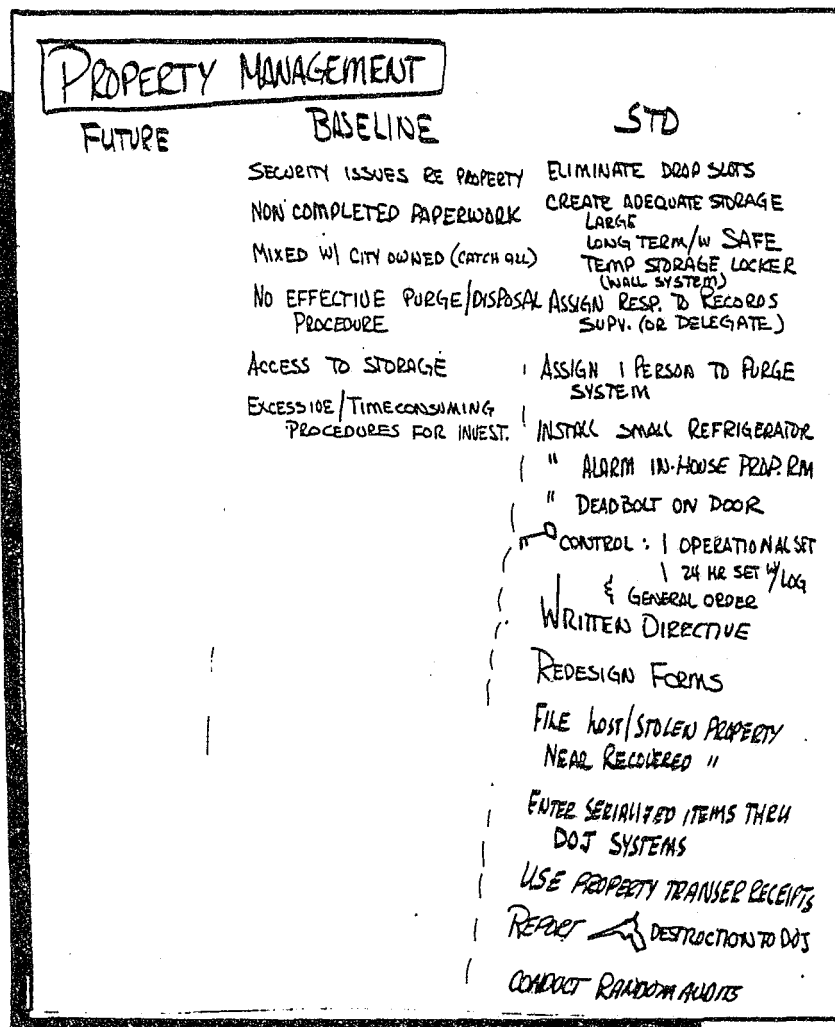 PROPERTY MANAGEMENT
FUTURE
BASELINE
SECURITY ISSUES RE PROPERTY
NON COMPLETED PAPERWORK
MIXED W/ CITY OWNED (CATCH ALL)
NO EFFECTIVE PURGE/DISPOSAL
PROCEDURE
ACCESS TO STORAGE
EXCESSIVE/TIMECONSUMING
PROCEDURES FOR INVEST.
STD
ELIMINATE DROP SLOTS
CREATE ADEQUATE STORAGE
LARGE
LONG TERM/W SAFE
TEMP STORAGE LOCKER
(WALL SYSTEM)
ASSIGN RESP. TO RECORDS
SUPV. (OR DELEGATE)
ASSIGN 1 PERSON TO PURGE
SYSTEM
INSTALL SMALL REFRIGERATOR
" ALARM IN-HOUSE PROP. RM
" DEADBOLT ON DOOR
CONTROL : 1 OPERATIONAL SET
1 24 HR SET W/ LOG
& GENERAL ORDER
WRITTEN DIRECTIVE
REDESIGN FORMS
FILE LOST/STOLEN PROPERTY
NEAR RECOVERED "
ENTER SERIALIZED ITEMS THRU
DOJ SYSTEMS
USE PROPERTY TRANSER RECEIPTS
REPORT DESTRUCTION TO DOJ
CONDUCT RANDOM AUDITS